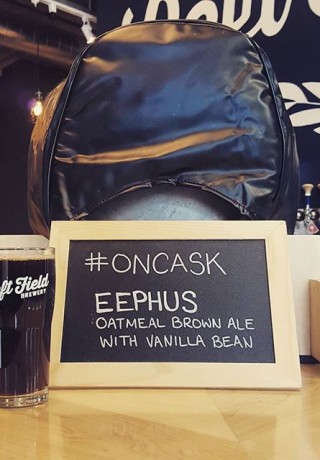 #ONCASK
EEPHUS
OATMEAL BROWN ALE
WITH VANILLA BEAN
ft Field
BREWERY